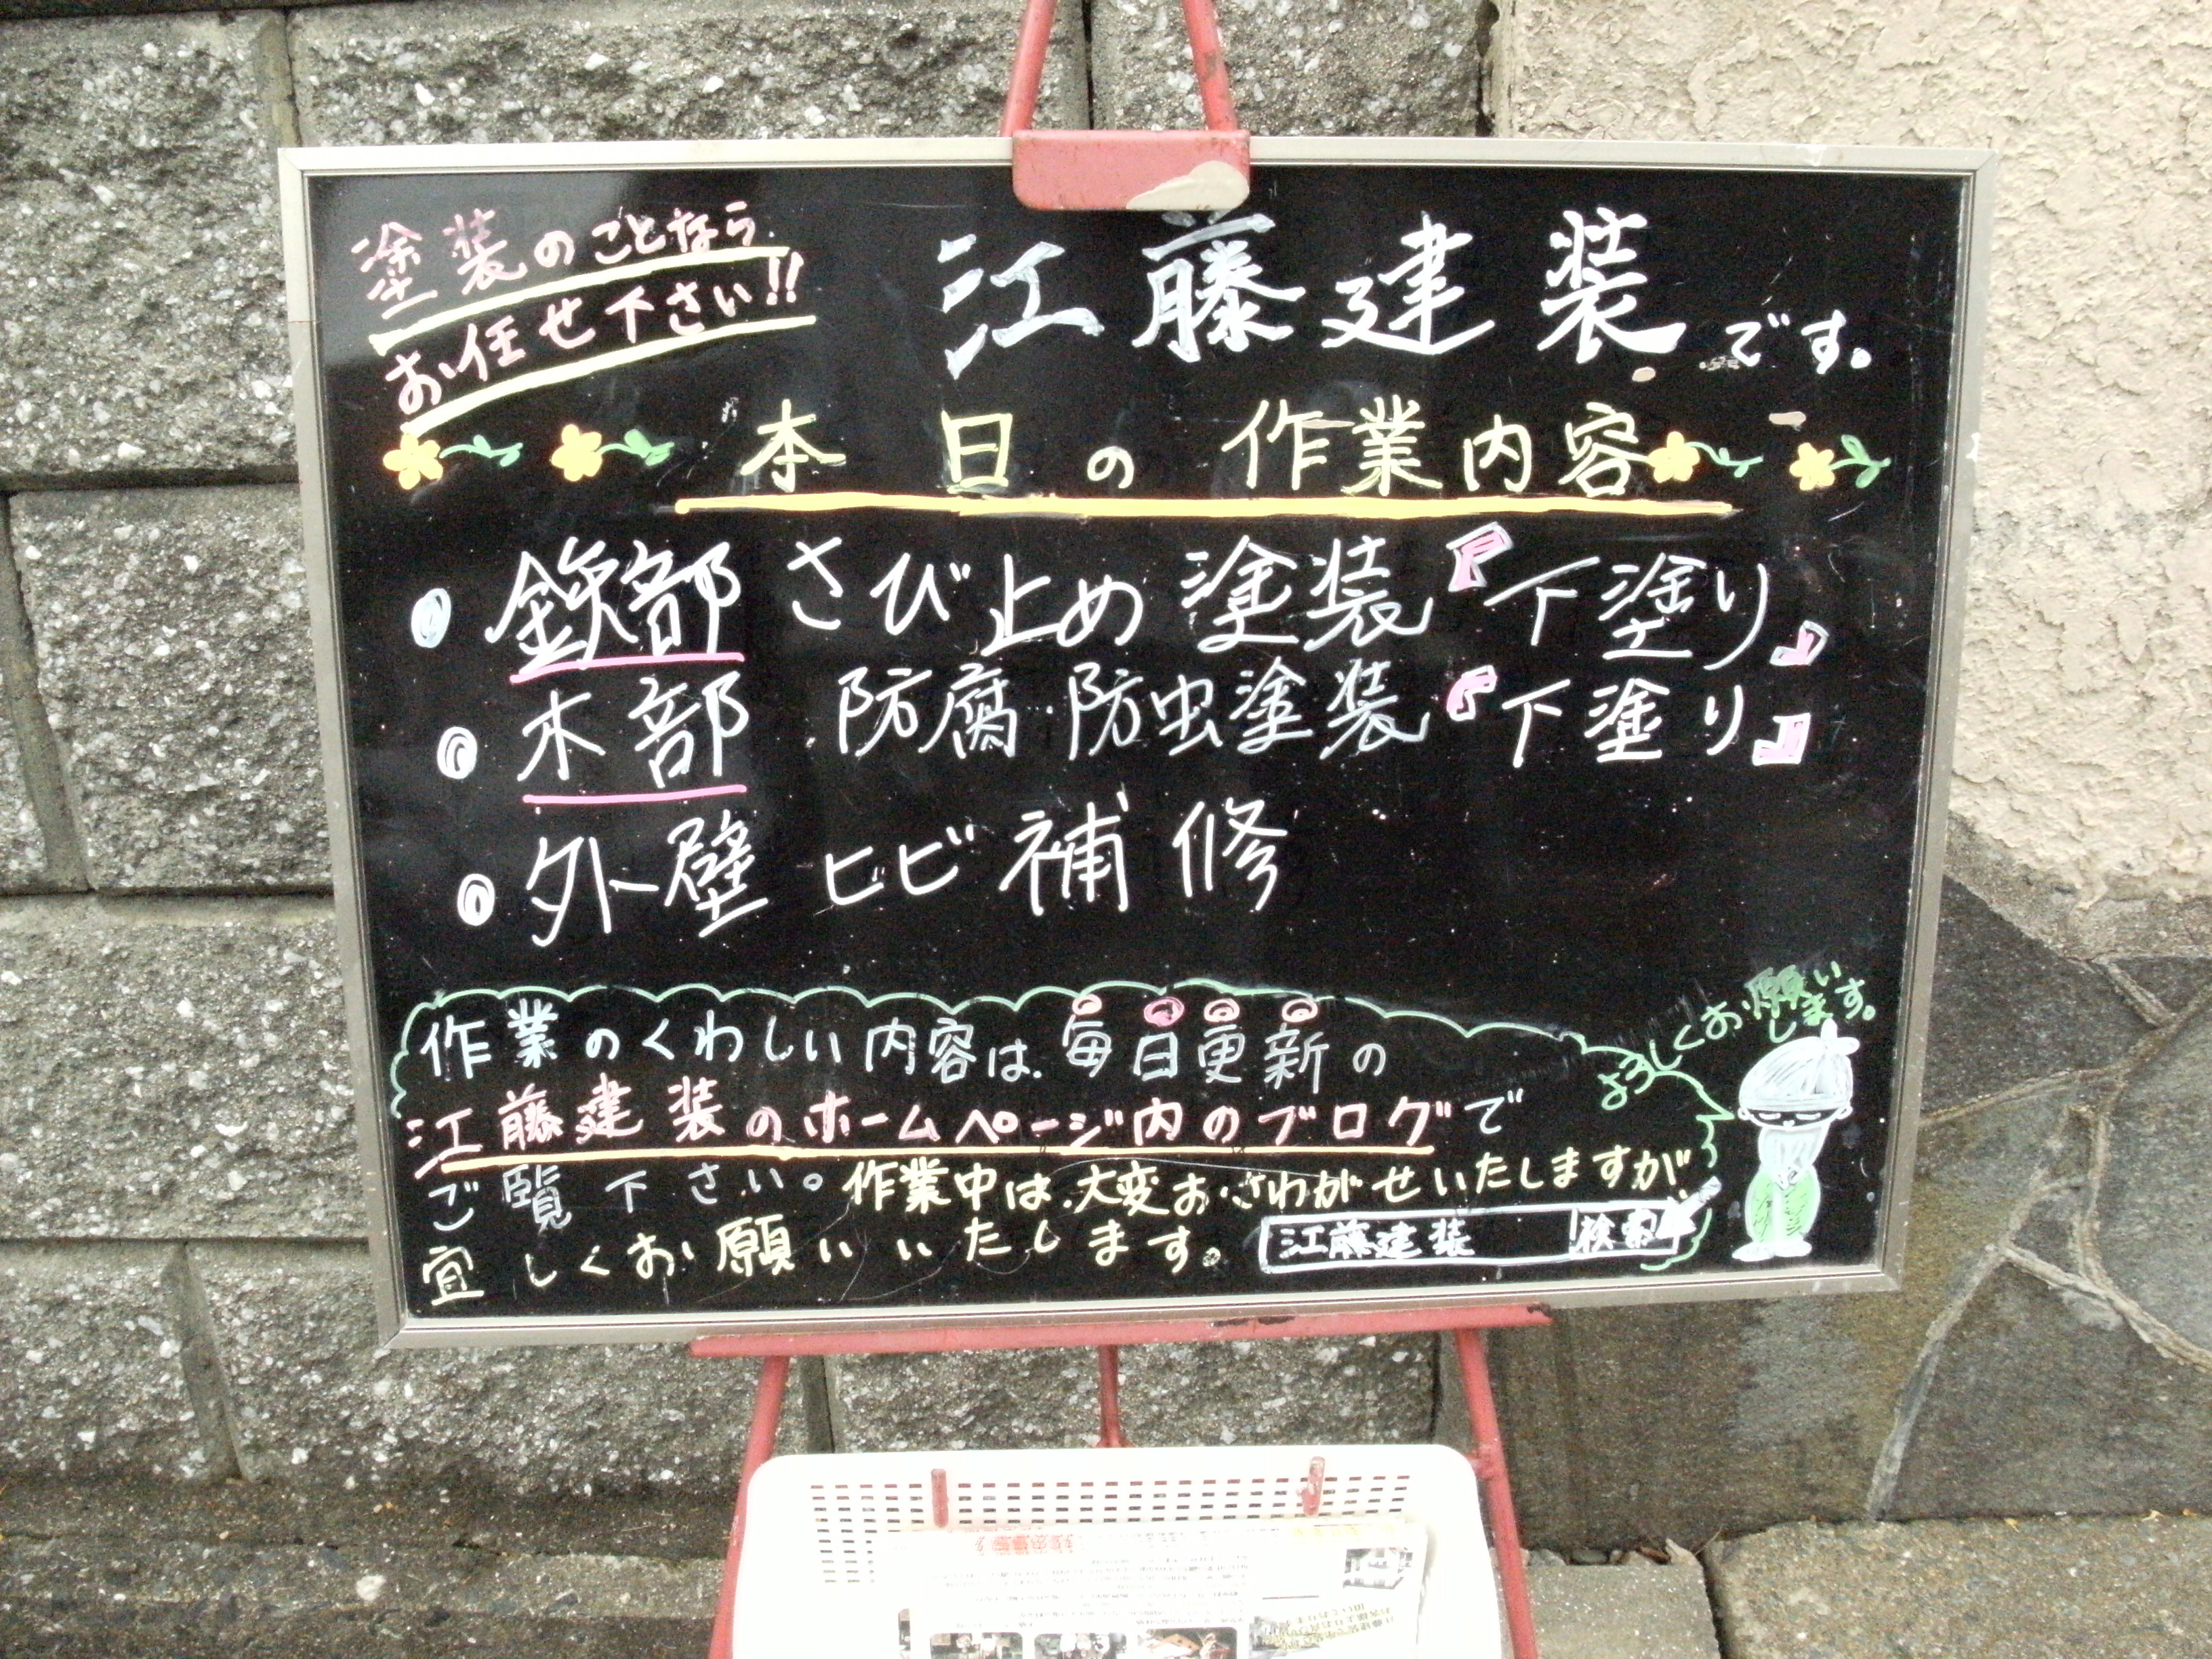 塗装のことなら
お任せ下さい!!
江藤建装です。
本日の作業内容
鉄部 さび止め塗装『下塗り』
木部 防腐・防虫塗装『下塗り』
外壁 ヒビ補修
作業のくわしい内容は、毎日更新の
江藤建装のホームページ内のブログで
ご覧下さい。作業中は大変おさわがせいたしますが、
宜しくお願いいたします。
江藤建装 検索
よろしくお願いします。